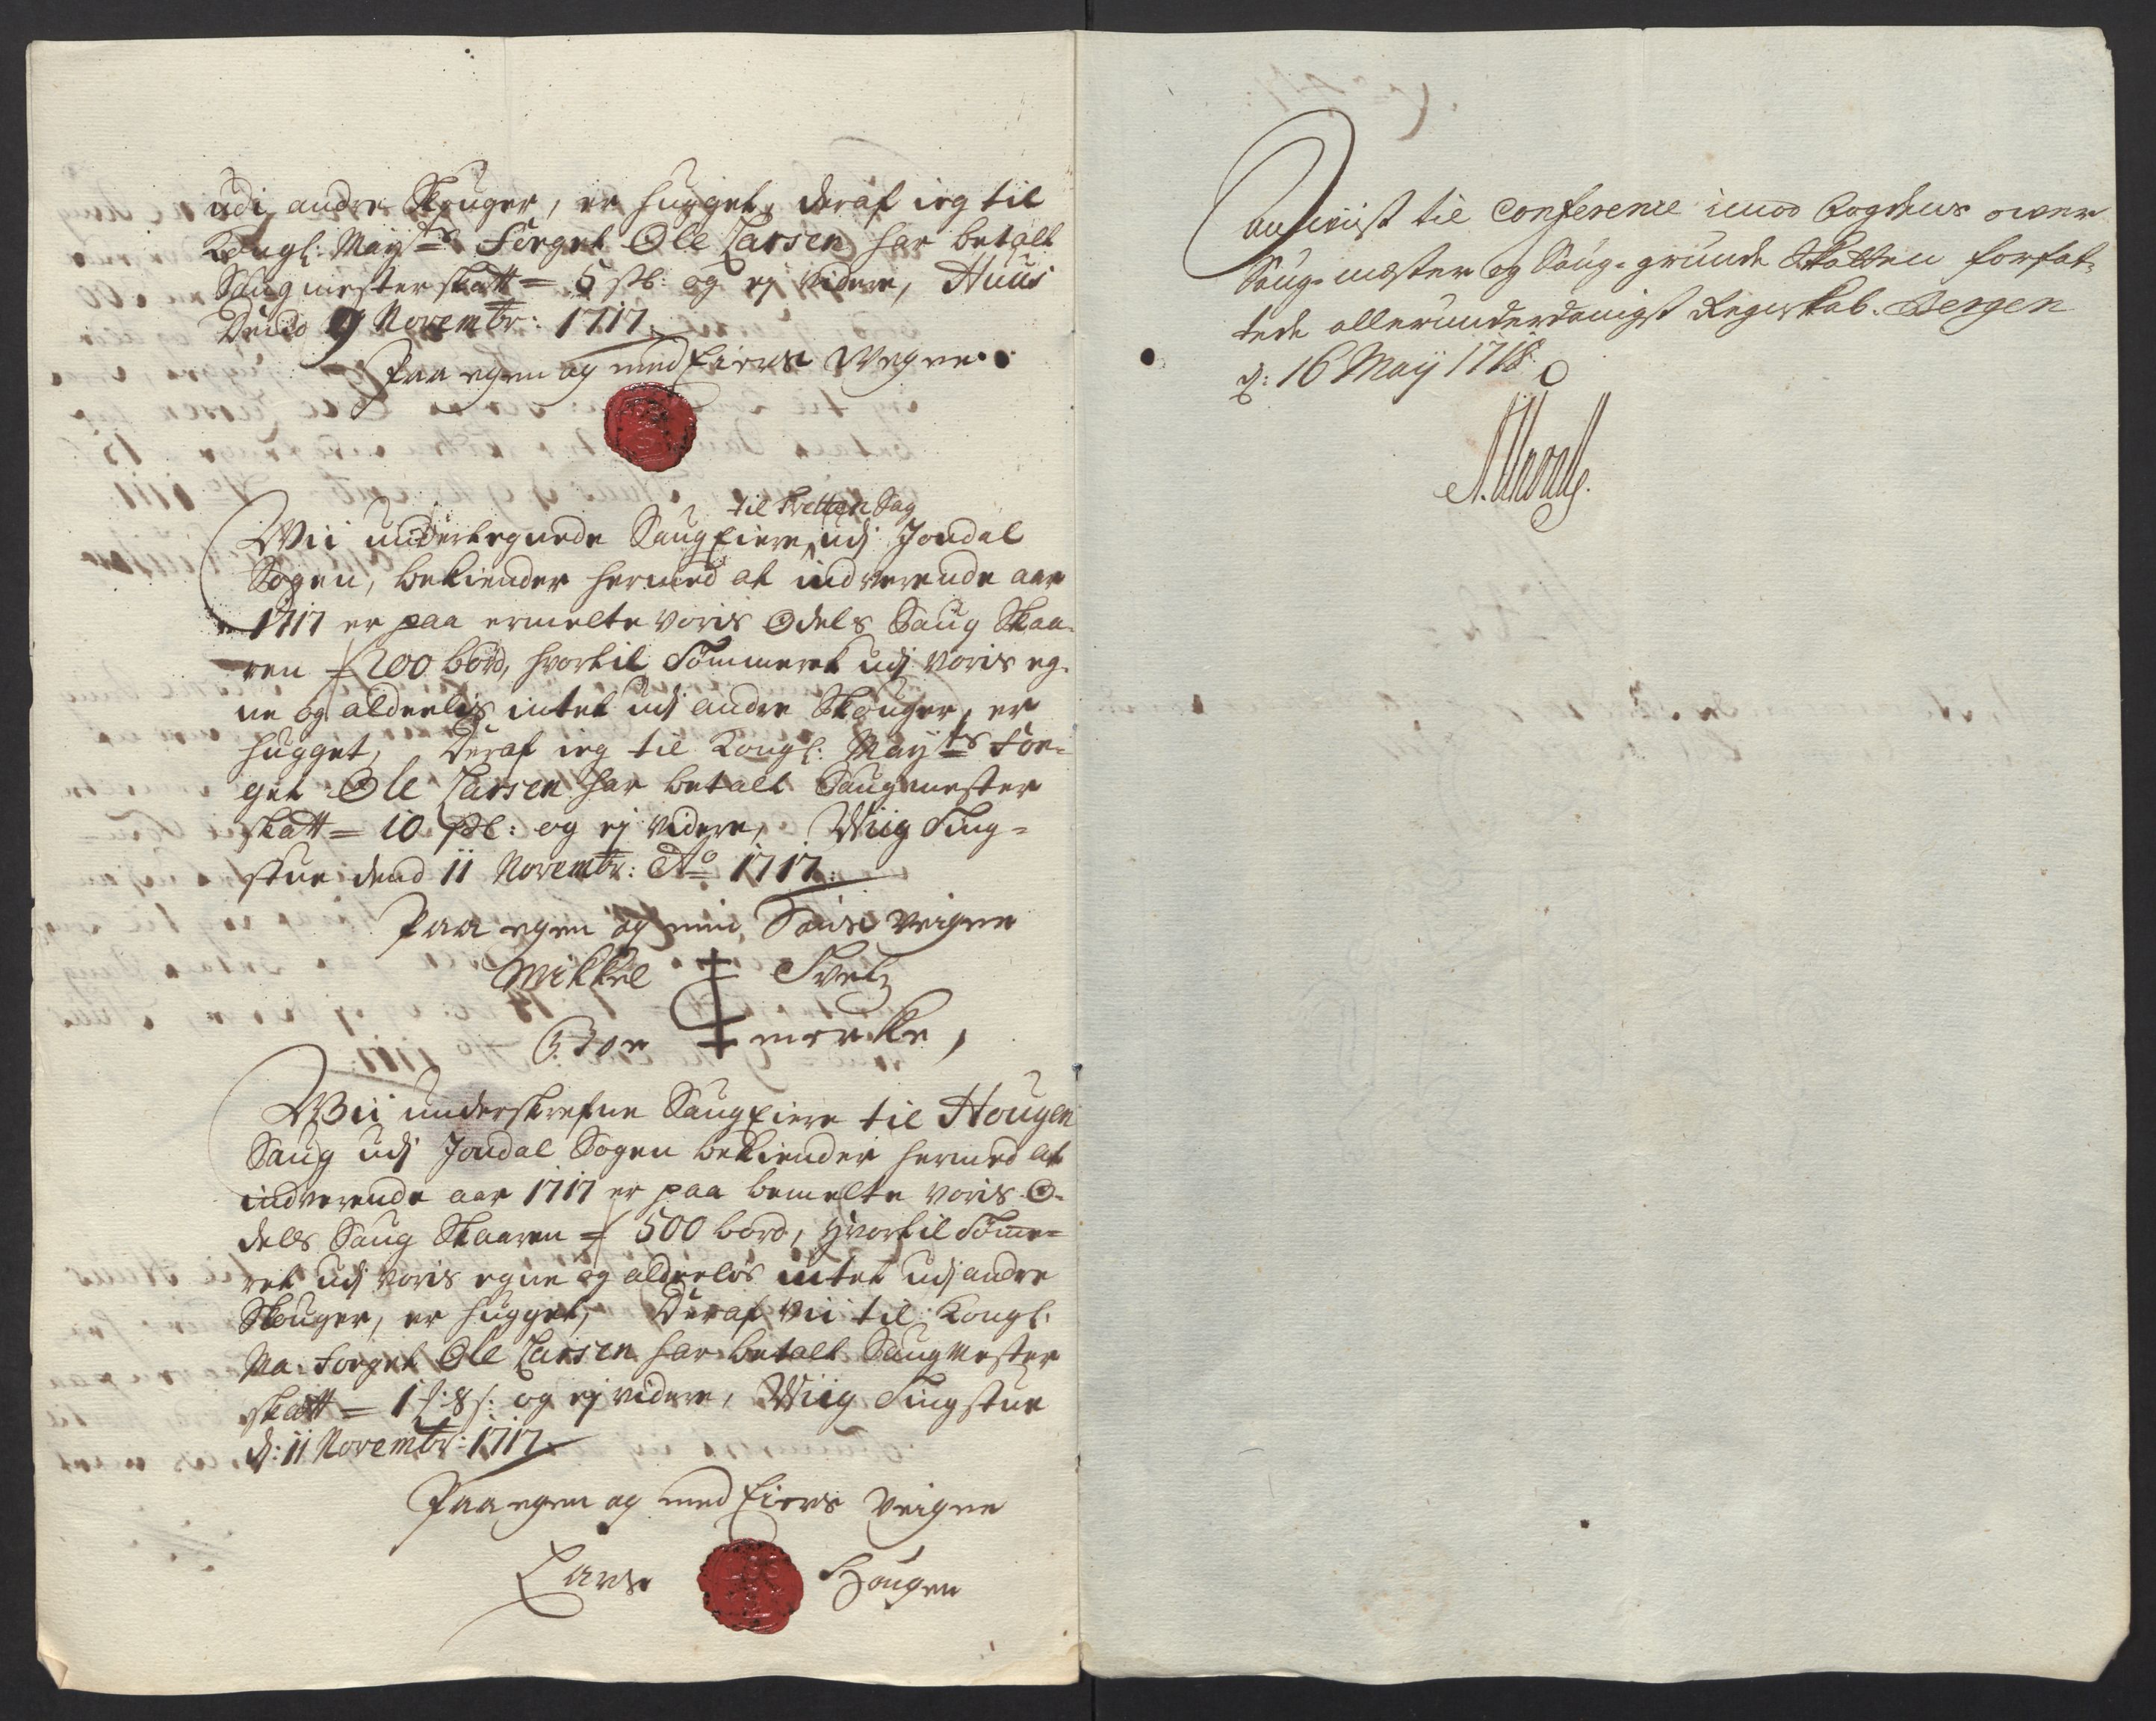 udi andre Skouger, er hugget, deraf ieg til
Kongl: May:ts Foeget Ole Larsen har betalt
Saugmesterskatt = 5 sk: og ej videre, Huus
Dend 9 Novembr: 1717.
Paa egen og med Eiers Wegne
til Tvetten Sag
Wii undertegnede Saug Eiere, udj Jondal
Sogen, bekiender hermed at indverende aar
1717 er paa ermelte voris Odels Saug Skaa-
ren = 200 bord, hvortil Tømmeret udj voris eg-
ne og aldeelis intet udj andre Skouger, er
hugget, Deraf ieg til Kongl: May:ts Foe-
get Ole Larsen har betalt Saugmester
skatt = 10 sk: og ej videre, Wiig Ting-
stue dend 11 Novembr: Ao 1717.
Paa egen og min Søns Veigne
Mikkel Tvet
boe merke,
Wii underskrefne Saug Eiere til Hougen
Saug udj Jondal Sogen bekiender hermed at
indverende aar 1717 er paa bemelte voris O-
dels Saug Skaaren = 500 bord, hvortil Tømme-
ret udj voris egne og aldeelis intet udj andre
Skouger, er hugget, Deraf vii til Kongl:
Ma: Foeget Ole Larsen har betalt Saugmester
skatt = 1 f: 8 s: og ej videre, Wiig Tingstue
d: 11 Novembr: 1717.
Paa egen og med Eiers Veigne
Lars Hougen
til Conference imod Fogdens over
Saug-mester og Saug-grunde Skatten forfat-
tede allerunderdanigst Regnskab. Bergen
d: 16 May 1718